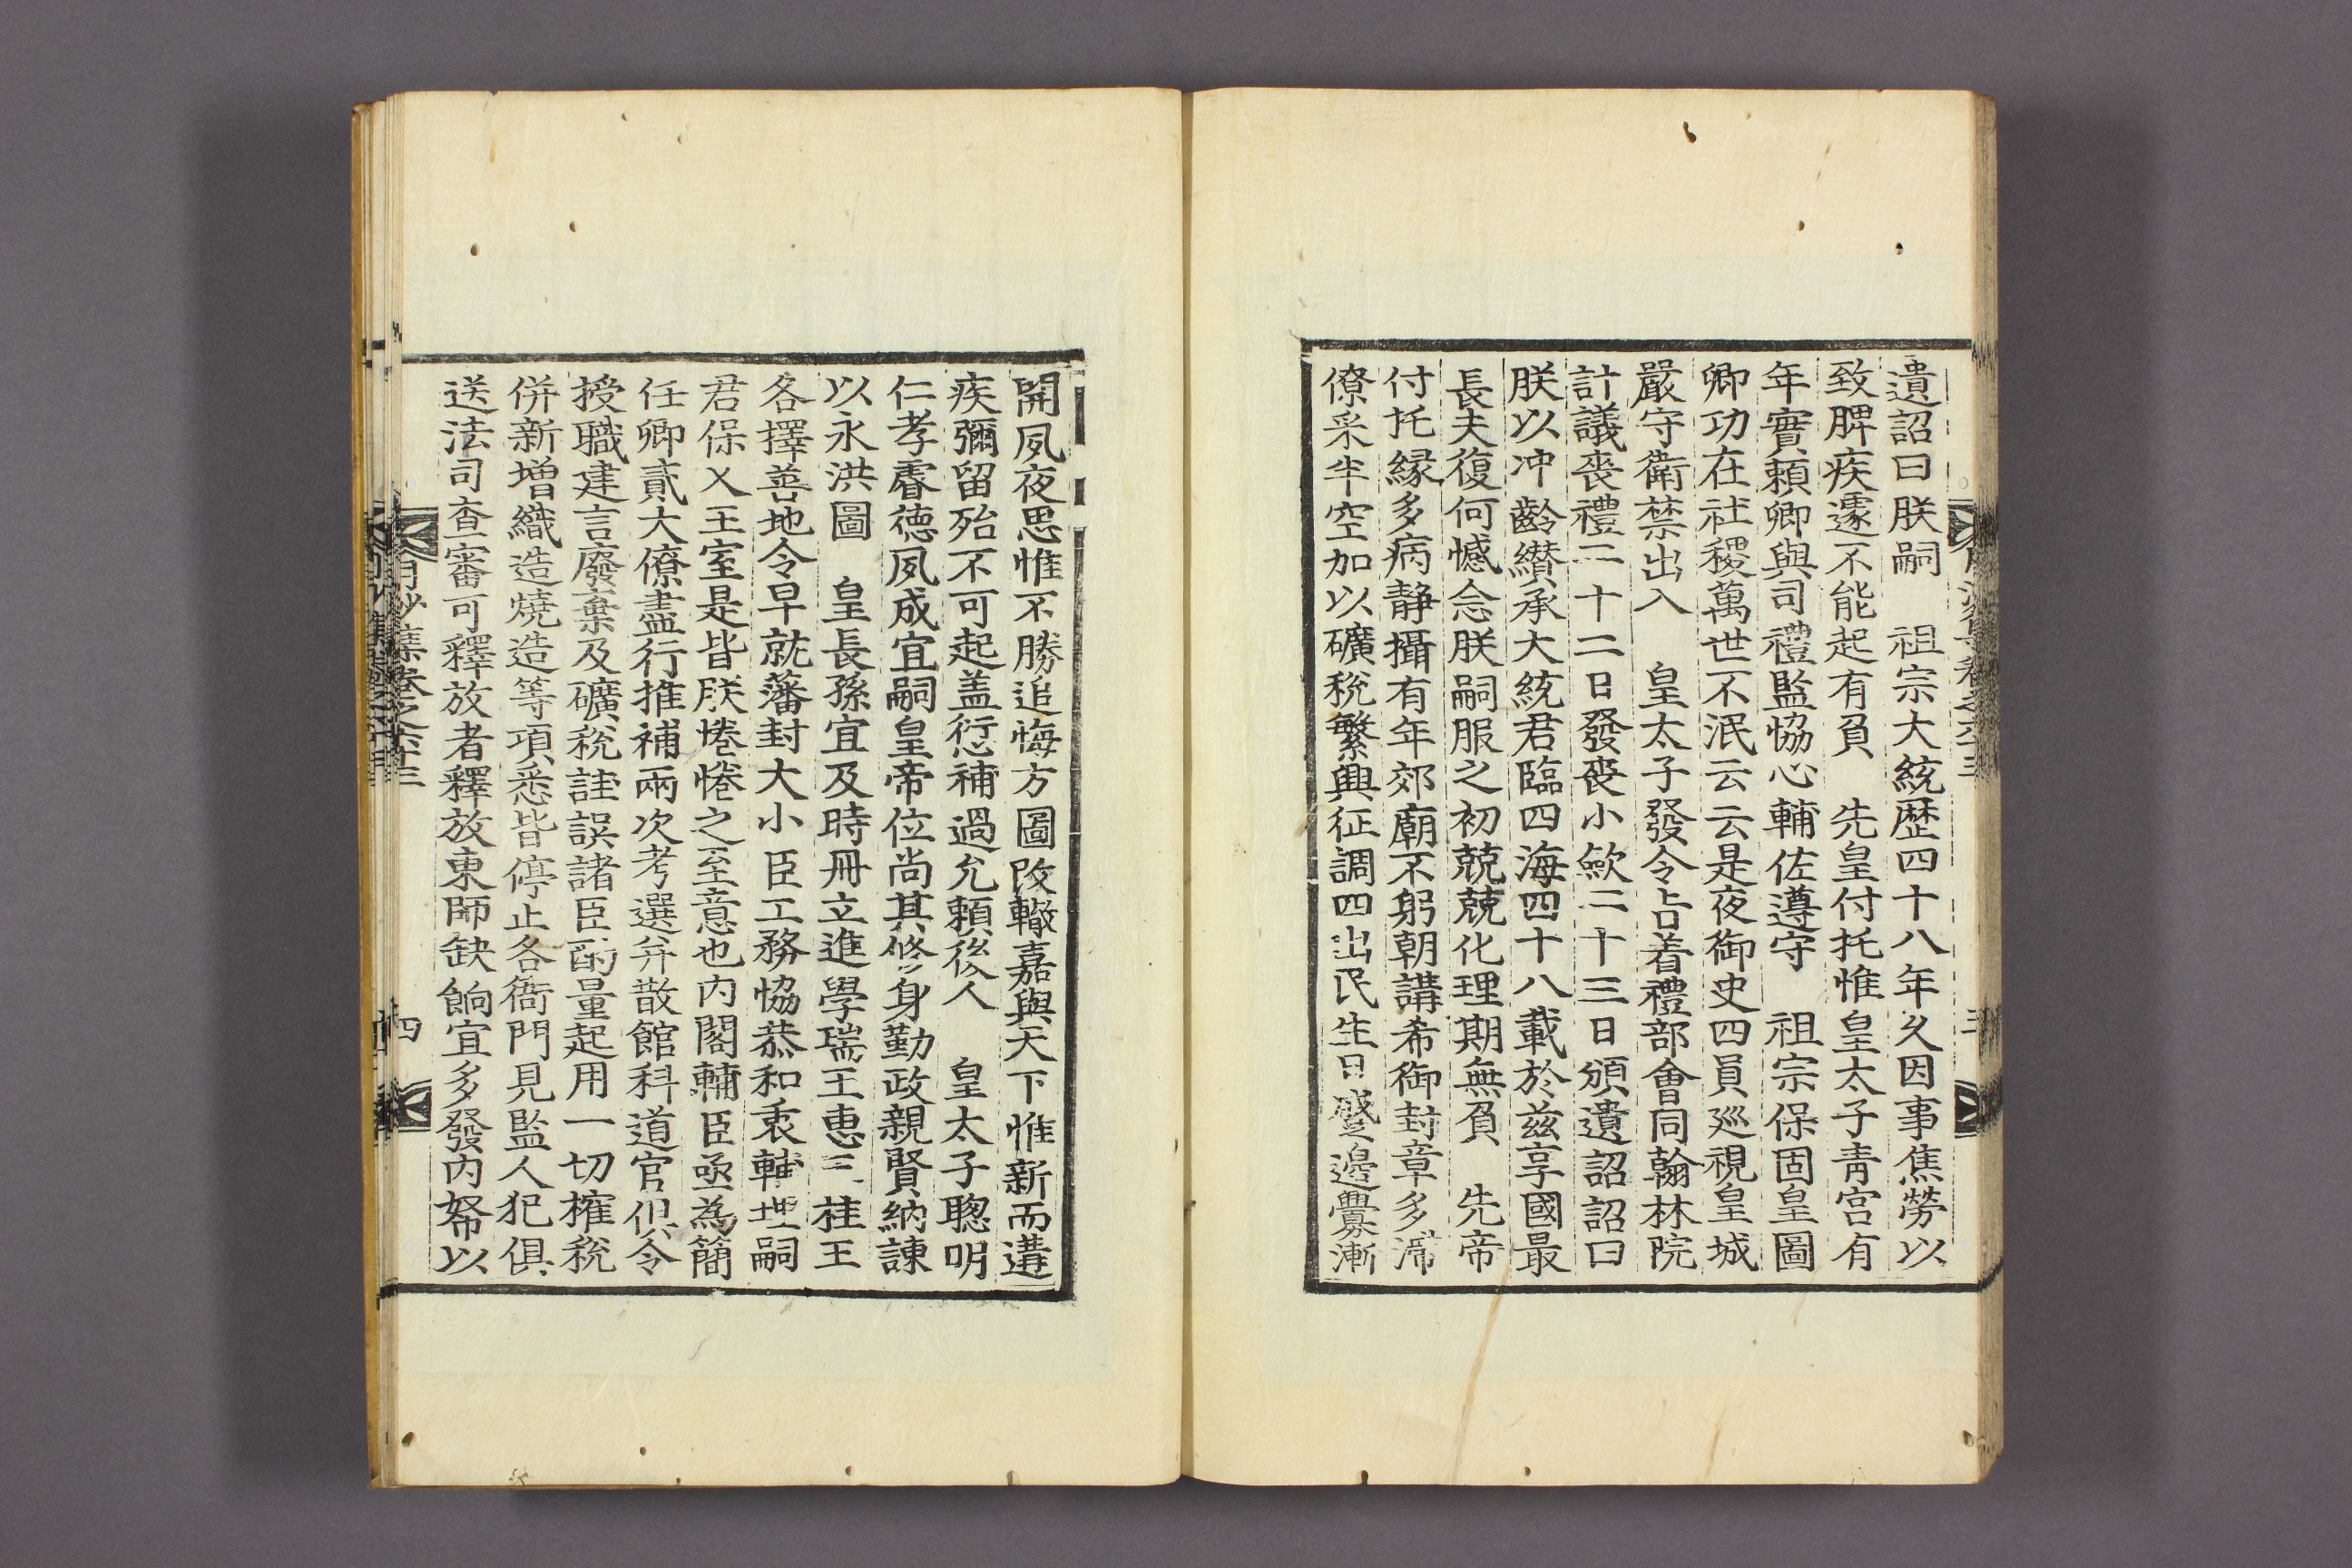 遺詔曰朕嗣 祖宗大統歷四十八年久因事焦勞以
致脾疾遽不能起有負 先皇付托惟皇太子青宮有
年實賴卿與司禮監協心輔佐遵守 祖宗保固皇圖
卿功在社稷萬世不泯云云是夜御史四員巡視皇城
嚴守衛禁出入 皇太子發令占着禮部會同翰林院
計議喪禮二十二日發喪小歛二十三日頒遺詔詔曰
朕以冲齡纘承大統君臨四海四十八載於兹享國最
長夫復何憾念朕嗣服之初兢兢化理期無負 先帝
付托緣多病靜攝有年郊廟不躬朝講希御封章多滯
僚采半空加以礦稅繁興征調四出民生日蹙邊釁漸
開夙夜思惟不勝追悔方圖改轍嘉與天下惟新而遘
疾彌留殆不可起盖愆補過允賴後人 皇太子聰明
仁孝睿德夙成宜嗣皇帝位尚其修身勤政親賢納諫
以永洪圖 皇長孫宜及時冊立進學瑞王惠王桂王
各擇善地令早就藩封大小臣工務協恭和衷輔理嗣
君保乂王室是皆朕惓惓之至意也内閣輔臣亟為簡
任卿貳大僚盡行推補兩次考選并散館科道官俱令
授職建言廢棄及礦稅詿誤諸臣酌量起用一切榷稅
併新增織造燒造等項悉皆停止各衙門見監人犯俱
送法司查審可釋放者釋放東師缺餉宜多發内帑以
月沙集卷之六十三
四